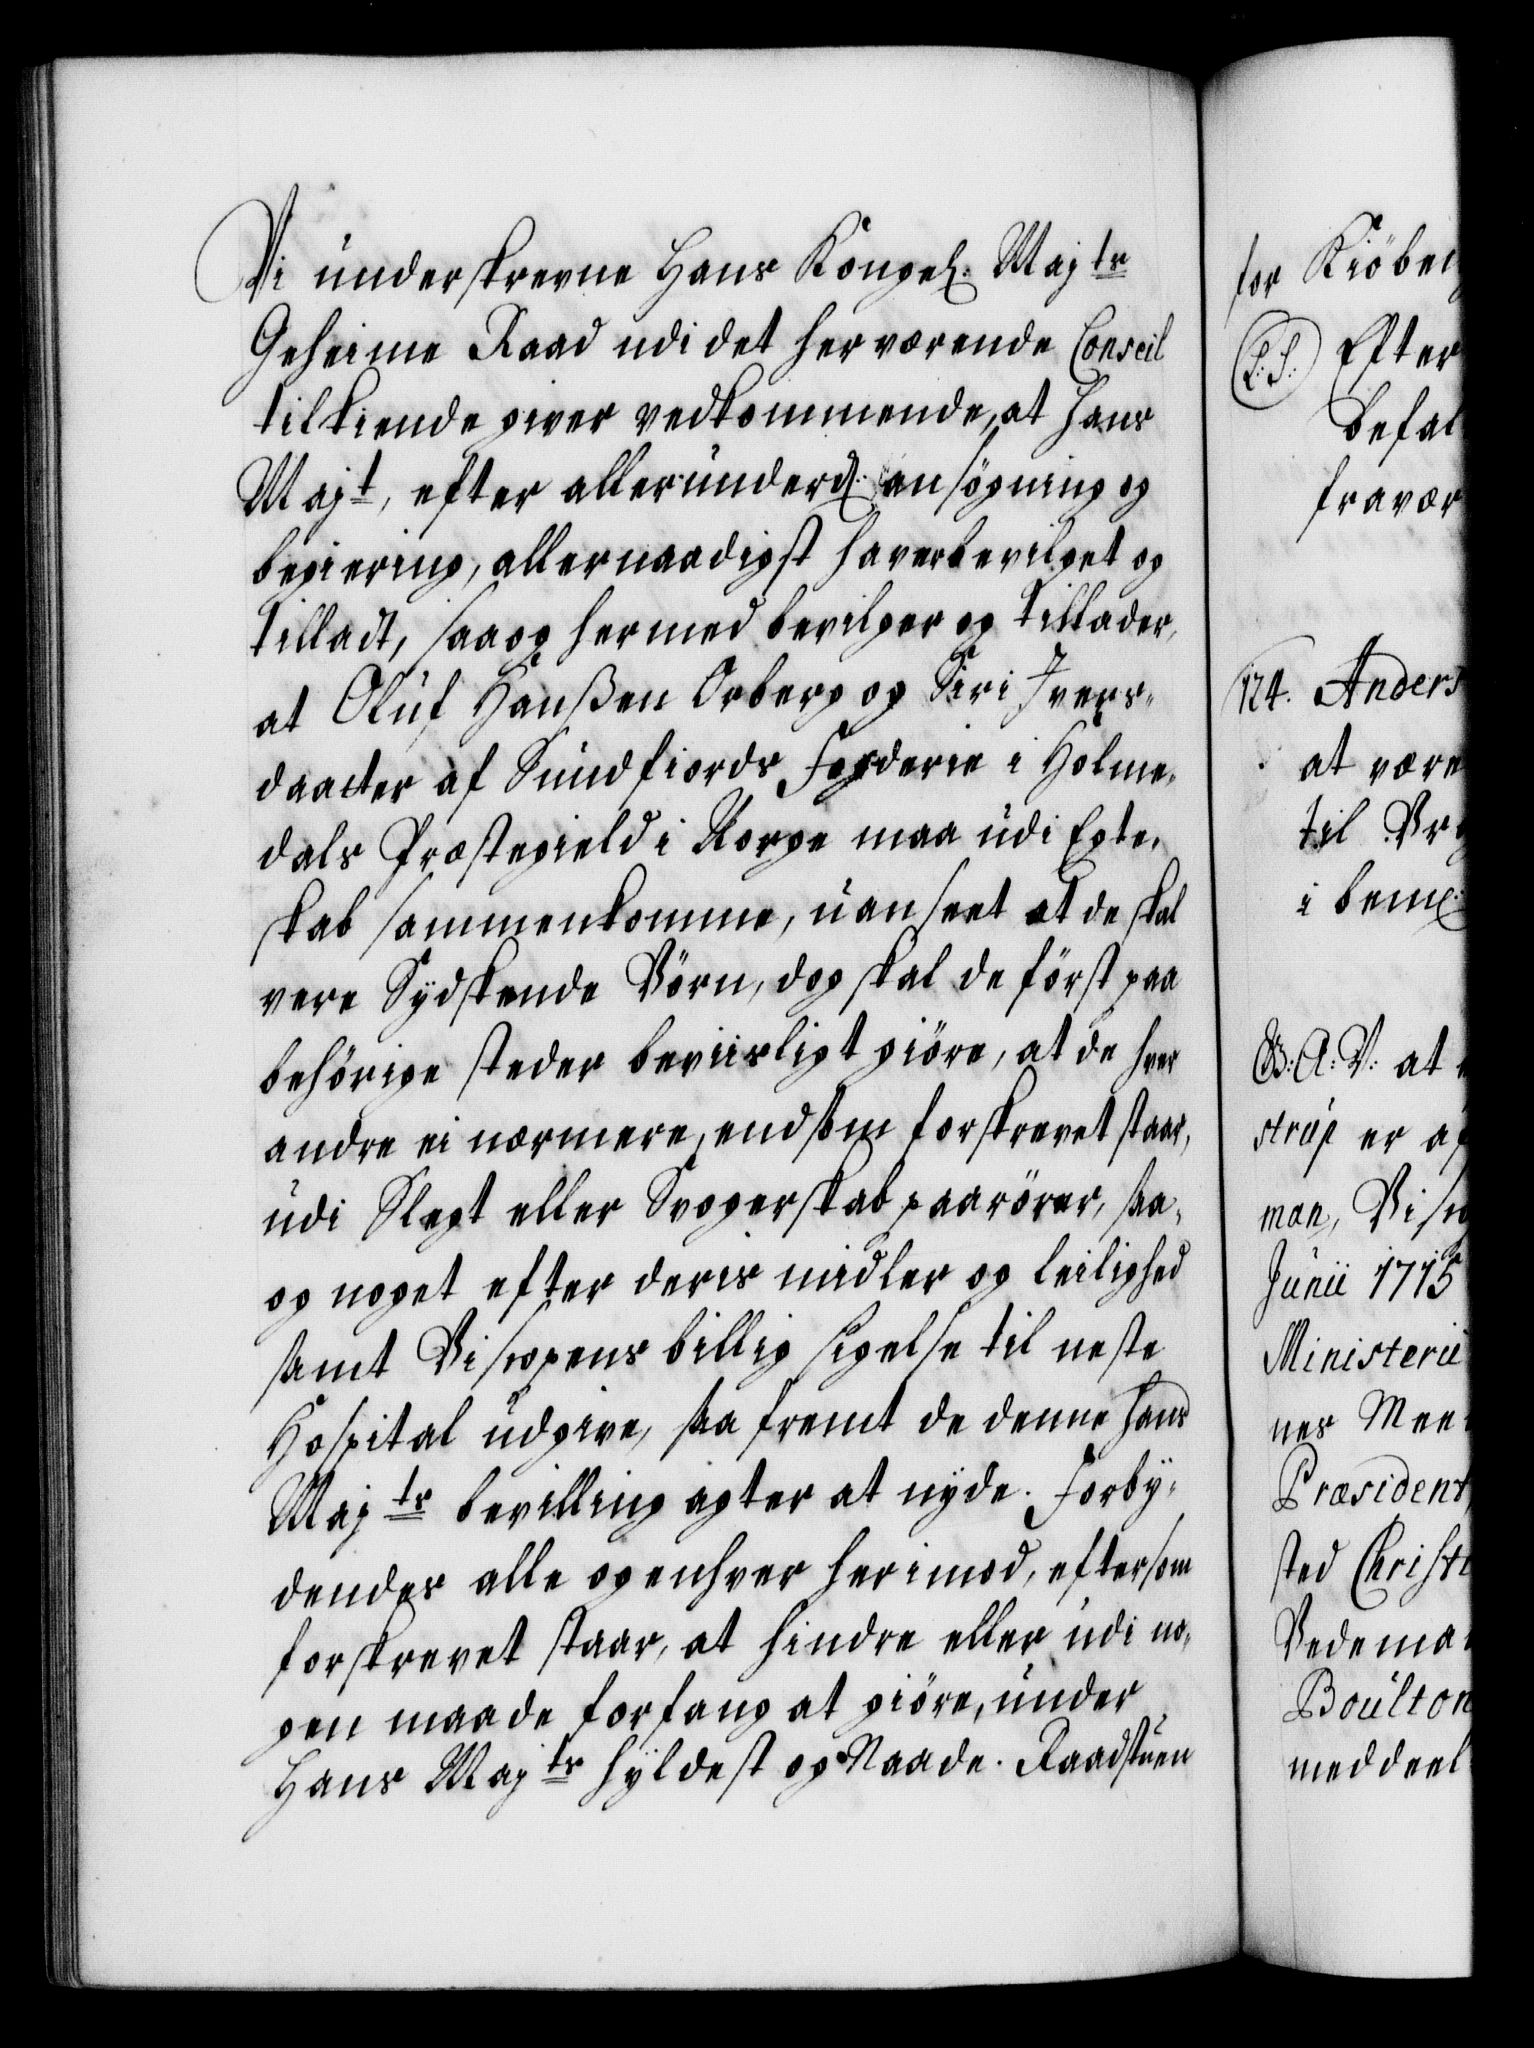 Vi underskrevne Hans Kongel. Majts
Geheime Raad udi det herværende Conseil
tilkiende giver vedkommende, at Hans
Majt, efter allerunderd. ansøgning og
begiering, allernaadigst haver bevilget og
tilladt, saa og hermed bevilger og tillader,
at Oluf Hanßen Orberg og Siri Ivers-
daatter af Sundfiords Fogderie i Holme-
dals Præstegield i Norge maa udi Egte-
skab sammenkomme, uanseet at de skal
vere Sydskende Börn, dog skal de först paa
behörige steder beviisligt giöre, at de hver
andre ei nærmere, end som forskrevet staar,
udi Slegt eller Svogerskab paarörer, saa-
og noget efter deris midler og leilighed
samt Biscopens billig sigelse til neste
Hospital udgive, saa fremt de denne Hans
Majts bevilling agter at nyde. Forby-
dendes alle og enhver her imod, eftersom
forskrevet staar, at hindre eller udi no-
gen maade forfang at giöre, under
Hans Majts hyldest og Naade. Raadstuen
for Kiöben
(L.S.) Efter
befal
fravær
174. Anders
at være
til Br
i bem.
G.A.V. at
strup er af
man, Bisco
Junii 1715
Ministerii
nes Mee
Præsident
sted Christ
Vedema
Boulton
meddeel